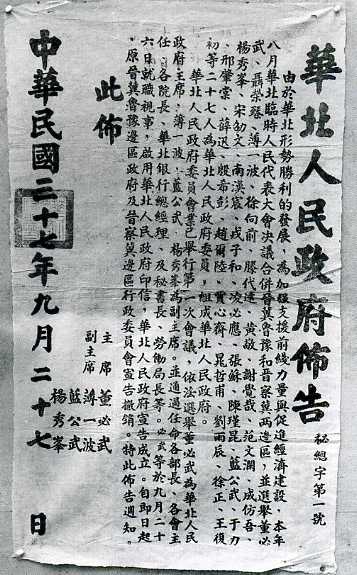 華北人民政府佈告
秘總字第一號
由於華北形勢勝利的發展，為加強支援前綫力量與促進經濟建設，本年
八月華北臨時人民代表大會決議合併晉冀魯豫和晉察冀兩邊區，並選舉董必
武、聶榮臻、薄一波、徐向前、滕代遠、黃敬、謝覺哉、范文瀾、成仿吾、
楊秀峯、宋劭文、南漢宸、戎子和、淩必應、張蘇、陳瑾昆、藍公武、于力
、邢肇棠、薛迅、殷希彭、趙爾陸、賈心齋、晁哲甫、劉雨辰、徐正、王復
初等二十七人為華北人民政府委員，組成華北人民政府。
華北人民政府委員會業已舉行第一次會議，依法選舉董必武為華北人民
政府主席，薄一波、藍公武、楊秀峯為副主席。並通過任命各部長、各會主
任、各院長、華北銀行總經理、及秘書長、勞働局長等。必武等於九月二十
六日就職視事，啟用華北人民政府印信，華北人民政府宣告成立。自即日起
，原晉冀魯豫邊區政府及晉察冀邊區行政委員會宣告撤銷。特此佈告通知。
此佈
主席 董必武
副主席 薄一波
藍公武
楊秀峯
中華民國三十七年九月二十七日